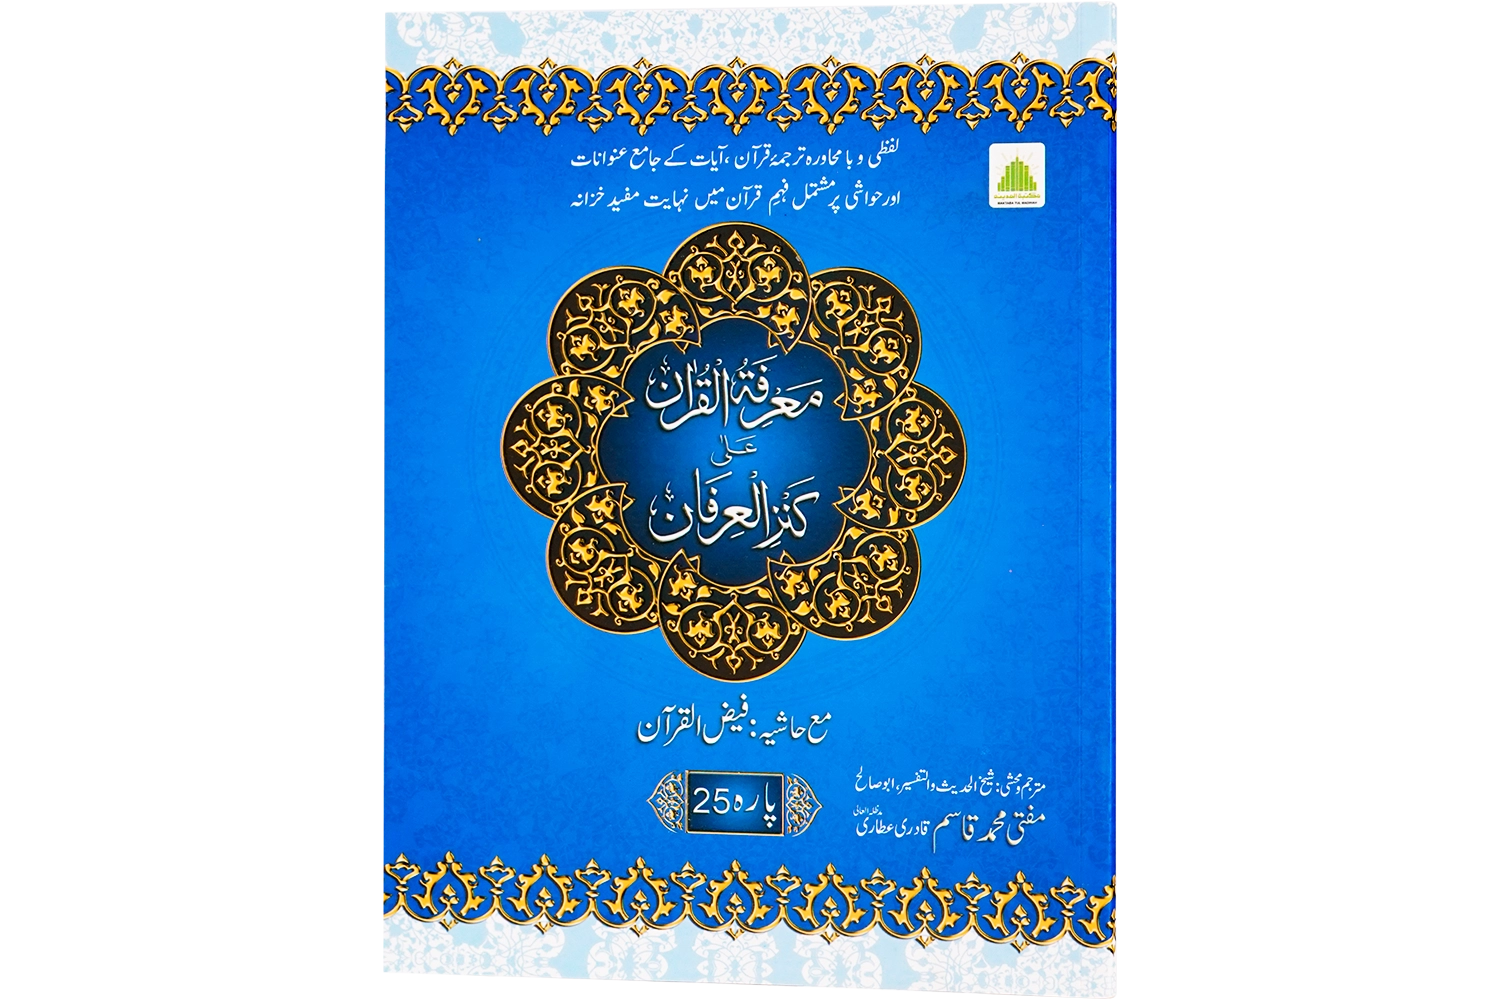 لفظی و بامحاورہ ترجمۂ قرآن، آیات کے جامع عنوانات
اور حواشی پر مشتمل فہمِ قرآن میں نہایت مفید خزانہ
مکتبۃ المدینہ
MAKTABA TUL MADINAH
مَعْرِفَۃُ الْقُرْاٰن
عَلٰی
کَنْزِ الْعِرْفَان
مع حاشیہ: فیض القرآن
پارہ 25
مترجم و محشی: شیخ الحدیث والتفسیر، ابو صالح
مفتی محمد قاسم قادری عطاری مدظلہ العالی